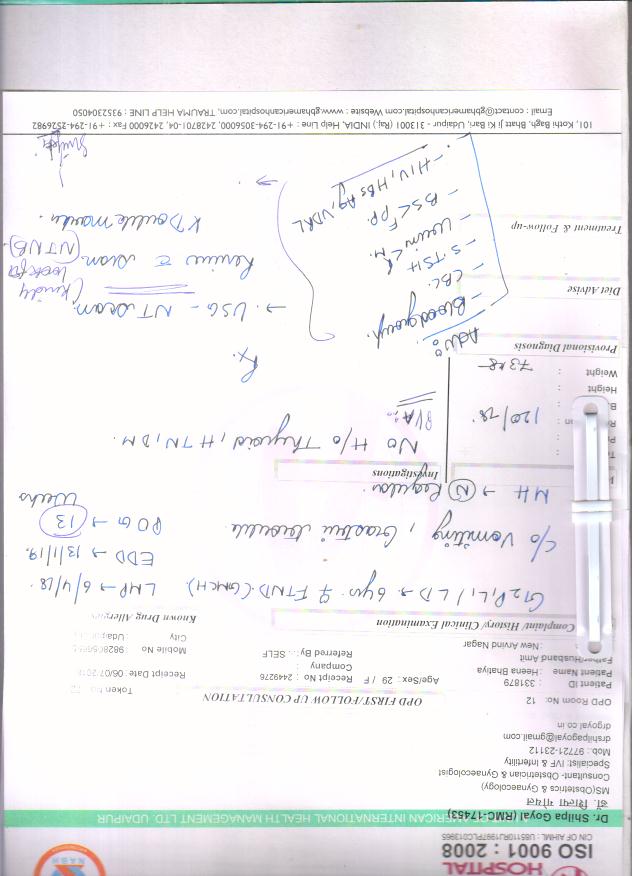 HOSPITAL
ISO 9001 : 2008
NABH
AMERICAN INTERNATIONAL HEALTH MANAGEMENT LTD. UDAIPUR
Dr. Shilpa Goyal (RMC-17453)
डॉ. शिल्पा गोयल
MS(Obstetrics & Gynaecology)
Consultant- Obstetrician & Gynaecologist
Specialist: IVF & Infertility
Mob.: 97721-23112
drshilpagoyal@gmail.com
drgoyal.co.in
OPD FIRST/FOLLOW UP CONSULTATION
OPD Room No: 12
Patient ID : 331879
Age/Sex:: 29 / F Receipt No : 2449276
Patient Name : Heena Bhatiya
Company :
Receipt Date :
Husband Amit
Referred By :. SELF
Mobile No
: New Arvind Nagar
City
Complaint/ History/ Clinical Examination
Known Drug Allergies
G2P1L1 / LD → 6 yrs. FTND (GMCH)
LMP → 6/4/18.
EDD → 13/1/19.
c/o Vomiting, Gastric trouble
POG → 13 Weeks
MH → N Regular
Investigations
No H/O Thyroid, HTN, DM.
120/78
P/A
Height :
Weight : 73 kg
Provisional Diagnosis
Rx.
Adv:
- Blood group.
- CBC.
- S.TSH
- Urine C M.
- BS F PP.
- HIV, HBsAg, VDRL
→ USG - NT Scan.
(Kindly look for NT NB)
Review c scan
Double marker.
Diet Advise
Treatment & Follow-up
101, Kothi Bagh, Bhatt Ji Ki Bari, Udaipur - 313001 (Raj.) INDIA, Help Line : +91-294-3056000, 2428701-04, 2426000 Fax : +91-294-2526982
Email : contact@gbhamericanhospital.com Website : www.gbhamericanhospital.com, TRAUMA HELP LINE : 9352304050